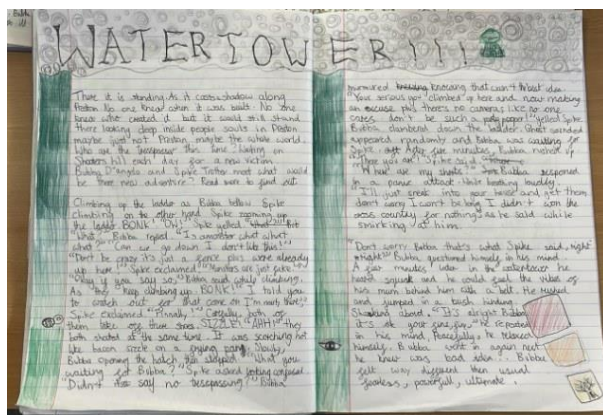 WATERTOWER!!!
There it is standing. As it casts shadow along
Preston No one knew when it was built. No one
knew who created it but it would still stand
there looking deep inside people souls in Preston
maybe just not Preston, maybe the whole world.
Who are the trespassers this time? Waiting on
Shooters hill each day for a new victim
Bubba D'Angelo and Spike Trotter meet what would
be there new adventure? Read more to find out
Climbing up the ladder as Bubba follow Spike
climbing on the other hand Spike zooming up
the ladder. BONK! "OW!" Spike yelled
"What?" Bubba replied "Is a monster what what
what" "Can we go down I don't like this!"
"Don't be crazy it's just a fence plus were already
up here!" Spike exclaimed "Monsters are just fake"
"Okay if you say so" Bubba said while climbing.
As they keep climbing up BONK! "I told you
to watch out for that come on I'm nearly there!"
Spike exclaimed "Finally!" Carefully, both of
them take off there shoes. SIZZLE! "AHH!" they
both shouted at the same time. It was scorching hot
like bacon stuck on a frying pan. Slowly,
Bubba opening the hatch, him stopped "What you
waiting for Bubba?" Spike asked looking confused
"Didn't it say no tresspassing?" Bubba
murmured knowing that wasn't the best idea.
"Your serious you climbed up here and now making
an excuse plus there's no cameras like no one
cares don't be such a party pooper!" yelled Spike
Bubba clambered down the ladder. Ghost sounded
appeared randomly and Bubba was waiting for
Spike. After five minutes Bubba melted up
"There you are!" Spike said.
"Where are my shorts?" Bubba responed
in a panic attack
"I'll just sneak into your house and get them
don't worry I won't be long I didn't won the
cross country for nothing" as he said while
smirking at him.
"Don't worry Bubba that's what Spike said, right"
"Right" Bubba questioned himself in his mind
A few minutes later in the watertower he
heard squeak and he could feel the vibes of
his mum behind him with a belt. He rushed
and jumped in a bush hiding.
Shaking about "It's alright Bubba
it's ok your fine," he repeated
in his mind, Peacefully he relaxed
himself. Bubba went in again next
he knew was bad idea. Bubba
felt way different then usual
fearless, powerfull, ultimate.